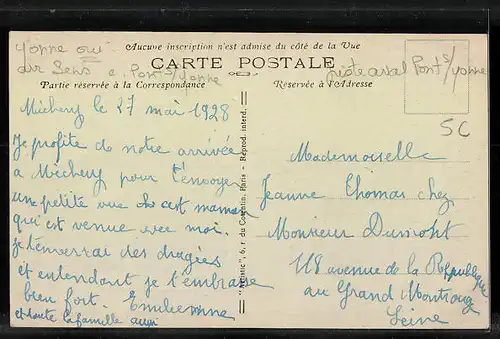 Aucune inscription n'est admise du côté de la Vue
CARTE POSTALE
Partie réservée à la Correspondance
Réservée à l'Adresse
Yonne oui
dir Sens e Pont s/yonne
juste aval Pont s/yonne
5C
Michery le 27 mai 1928
Je profite de notre arrivée
a Michery pour t'envoyer
une petite vue c'est maman
qui est venue avec moi.
je t'enverrai des dragées
et entendant je t'embrasse
bien fort. Emilienne
et toute la famille aussi
"Artistic" 4, r. du Cotentin, Paris - Reprod. interd.
Mademoiselle
Jeanne Thomas chez
Monsieur Dumont
118 avenue de la République
au Grand Montrouge
Seine